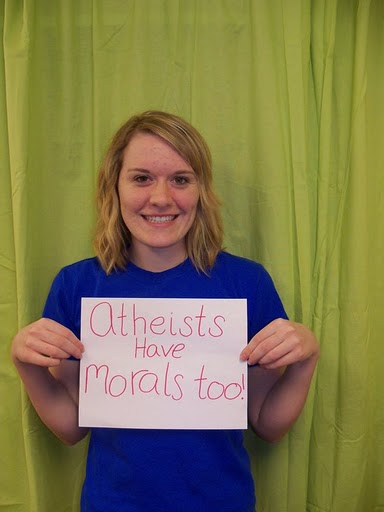 Atheists
Have
Morals too!